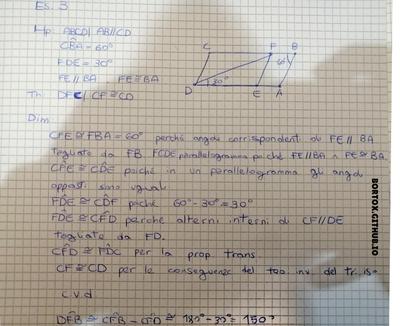 Es. 3
Hp: ABCD| AB//CD
CB̂A = 60°
FD̂E = 30°
FE // BA FE ≅ BA
Th: DFC| CF ≅ CD
C F B
60°
30°
D E A
Dim
CF̂E ≅ FB̂A = 60° perché angoli corrispondenti di FE // BA
tagliate da FB FCDE parallelogramma poiché FE//BA ∧ FE≅BA.
CF̂E ≅ CD̂E poiché in un parallelogramma gli angoli
opposti sono uguali
FD̂E ≅ CD̂F poiché 60° - 30° = 30°
FD̂E ≅ CF̂D perché alterni interni di CF//DE
tagliate da FD.
CF̂D ≅ FD̂C per la prop. trans.
CF ≅ CD per le conseguenze del teo inv. del tr. iso
c.v.d
DF̂B ≅ CF̂B - CF̂D ≅ 180° - 30° = 150°
BORTOX.GITHUB.IO